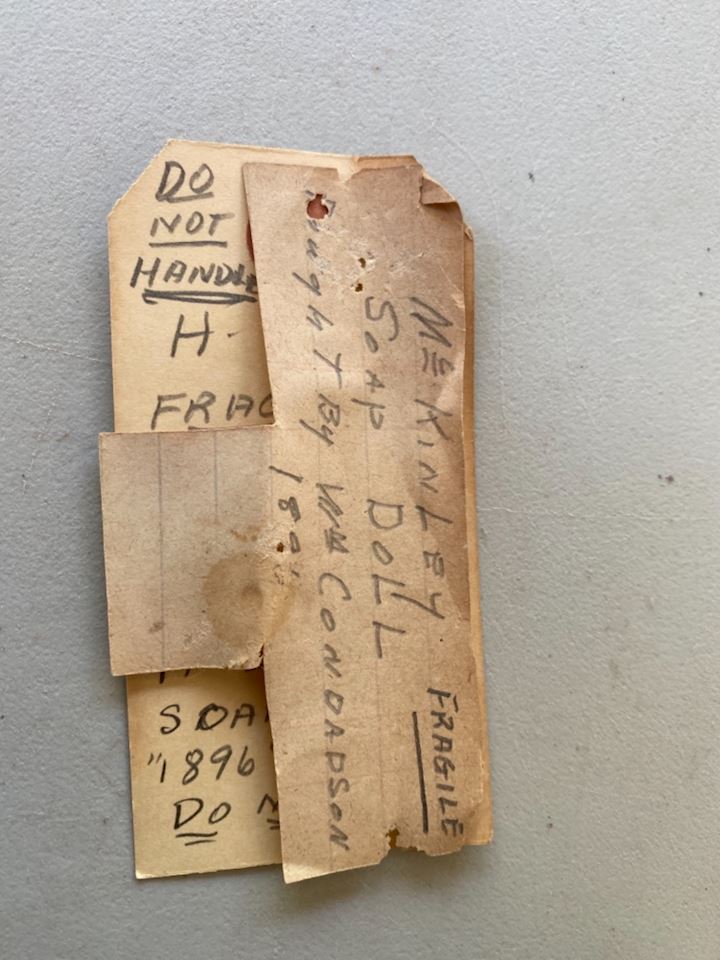 DO
NOT
HANDLE
H-
FRAG
SOA
"1896"
DO N
McKINLEY
SOAP DOLL
ught By Wm CONDADSON
FRAGILE